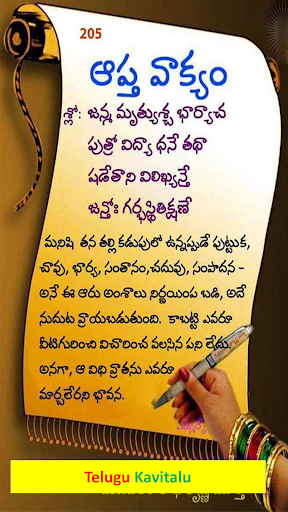 205
ఆప్త వాక్యం
శ్లో: జన్మ మృత్యుశ్చ భార్యాచ
పుత్రో విద్యా ధనే తథా
షడేతాని విలిఖ్యన్తే
జన్తోః గర్భస్థితిక్షణే
మనిషి తన తల్లి కడుపులో ఉన్నప్పుడే పుట్టుక,
చావు, భార్య, సంతానం,చదువు, సంపాదన -
అనే ఈ ఆరు అంశాలు నిర్ణయింప బడి, అదే
నుదుట వ్రాయబడుతుంది. కాబట్టి ఎవరూ
వీటిగురించి విచారించ వలసిన పని లేదు
అనగా, ఆ విధి వ్రాతను ఎవరూ
మార్చలేరని భావన.
Telugu Kavitalu